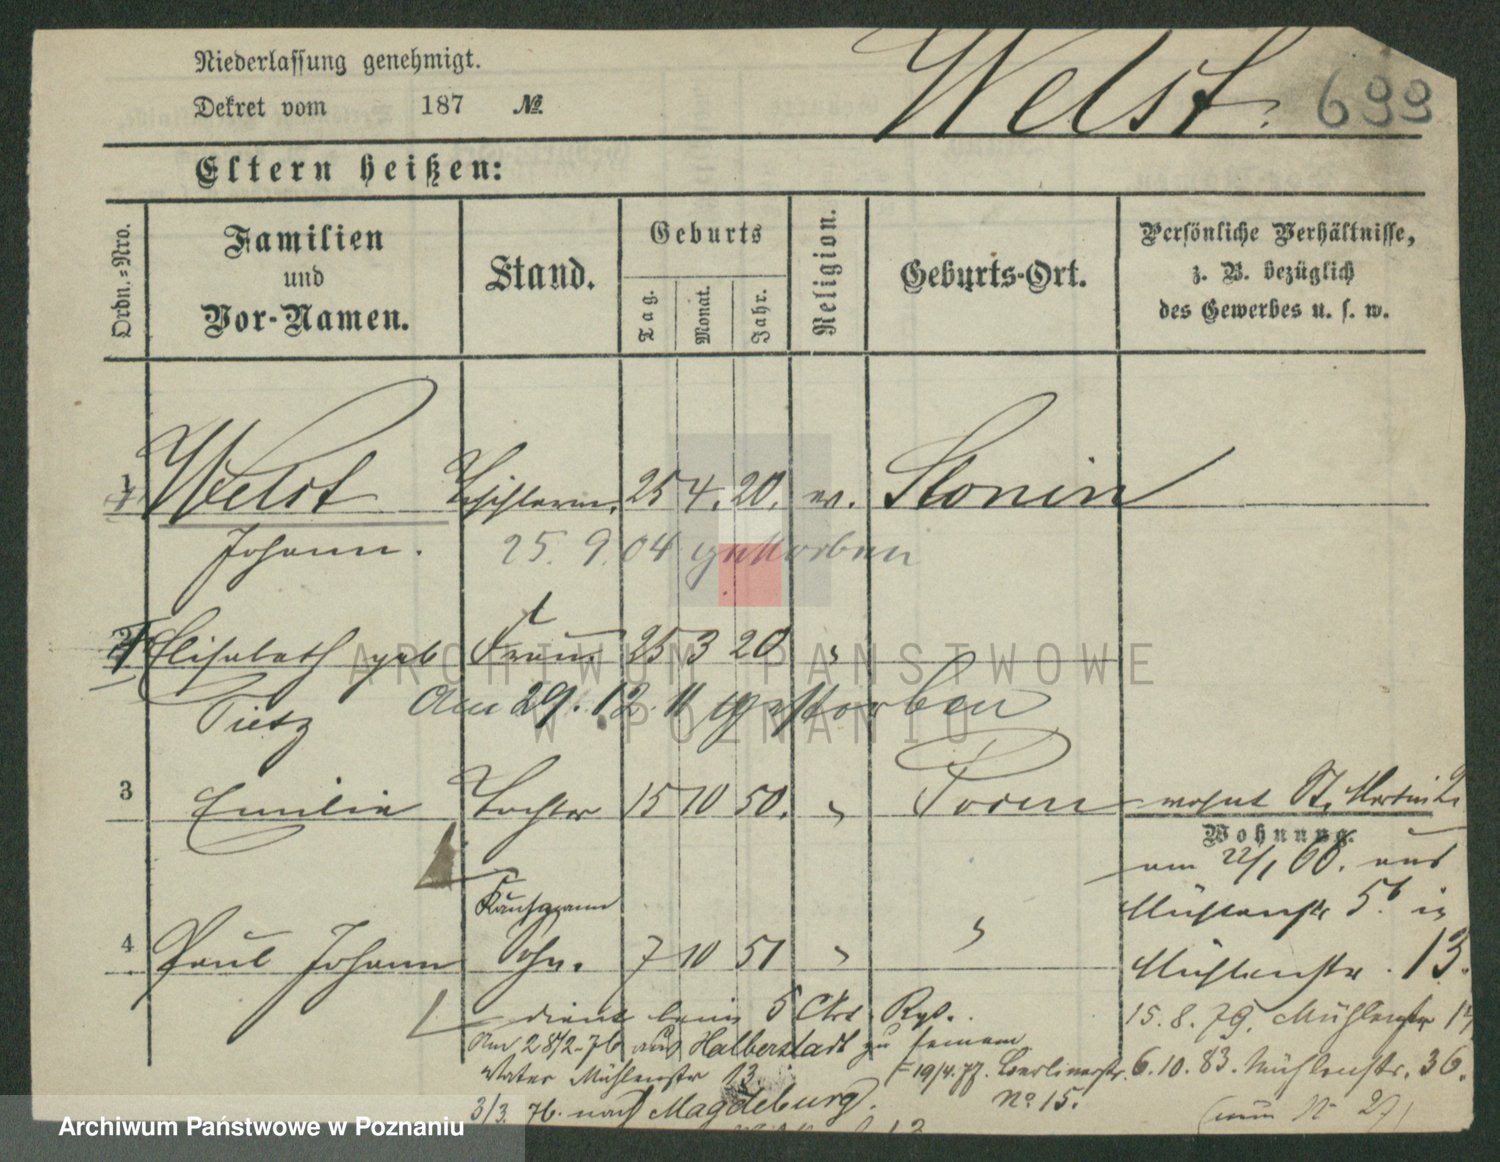 Niederlassung genehmigt.
Dekret vom 187 №
Welst. 699
Eltern heißen:
Ordn.-Nro.
Familien
und
Vor-Namen.
Stand.
Geburts
Tag.
Monat.
Jahr.
Religion.
Geburts-Ort.
Persönliche Verhältnisse,
z. B. bezüglich
des Gewerbes u. s. w.
1 Welst Tischlerm. 25 4. 20. ev. Slonin
Johann.
25. 9. 04 gestorben
2 Elisabeth geb Frau 25 3 20
Tietz
Am 29. 12. 11 gestorben
3 Emilie Tochter 15 10 50. Posen wohnt St. Martin
Wohnung.
am 22/1 60. aus
Mühlenstr 5b in
4 Paul Johann Kaufmann
Sohn. 7 10 51
Mühlenstr. 13.
dient beim 5 Rgt.
15. 8. 79. Mühlenstr
Am 28/2-76 aus Halberstadt zu seinem
Vater Mühlenstr 13
19/4. 77. Berlinerstr.
No 15.
6. 10. 83. Mühlenstr. 36.
3/3. 76. nach Magdeburg.
(nun No 27)
ARCHIWUM PAŃSTWOWE
W POZNANIU
Archiwum Państwowe w Poznaniu